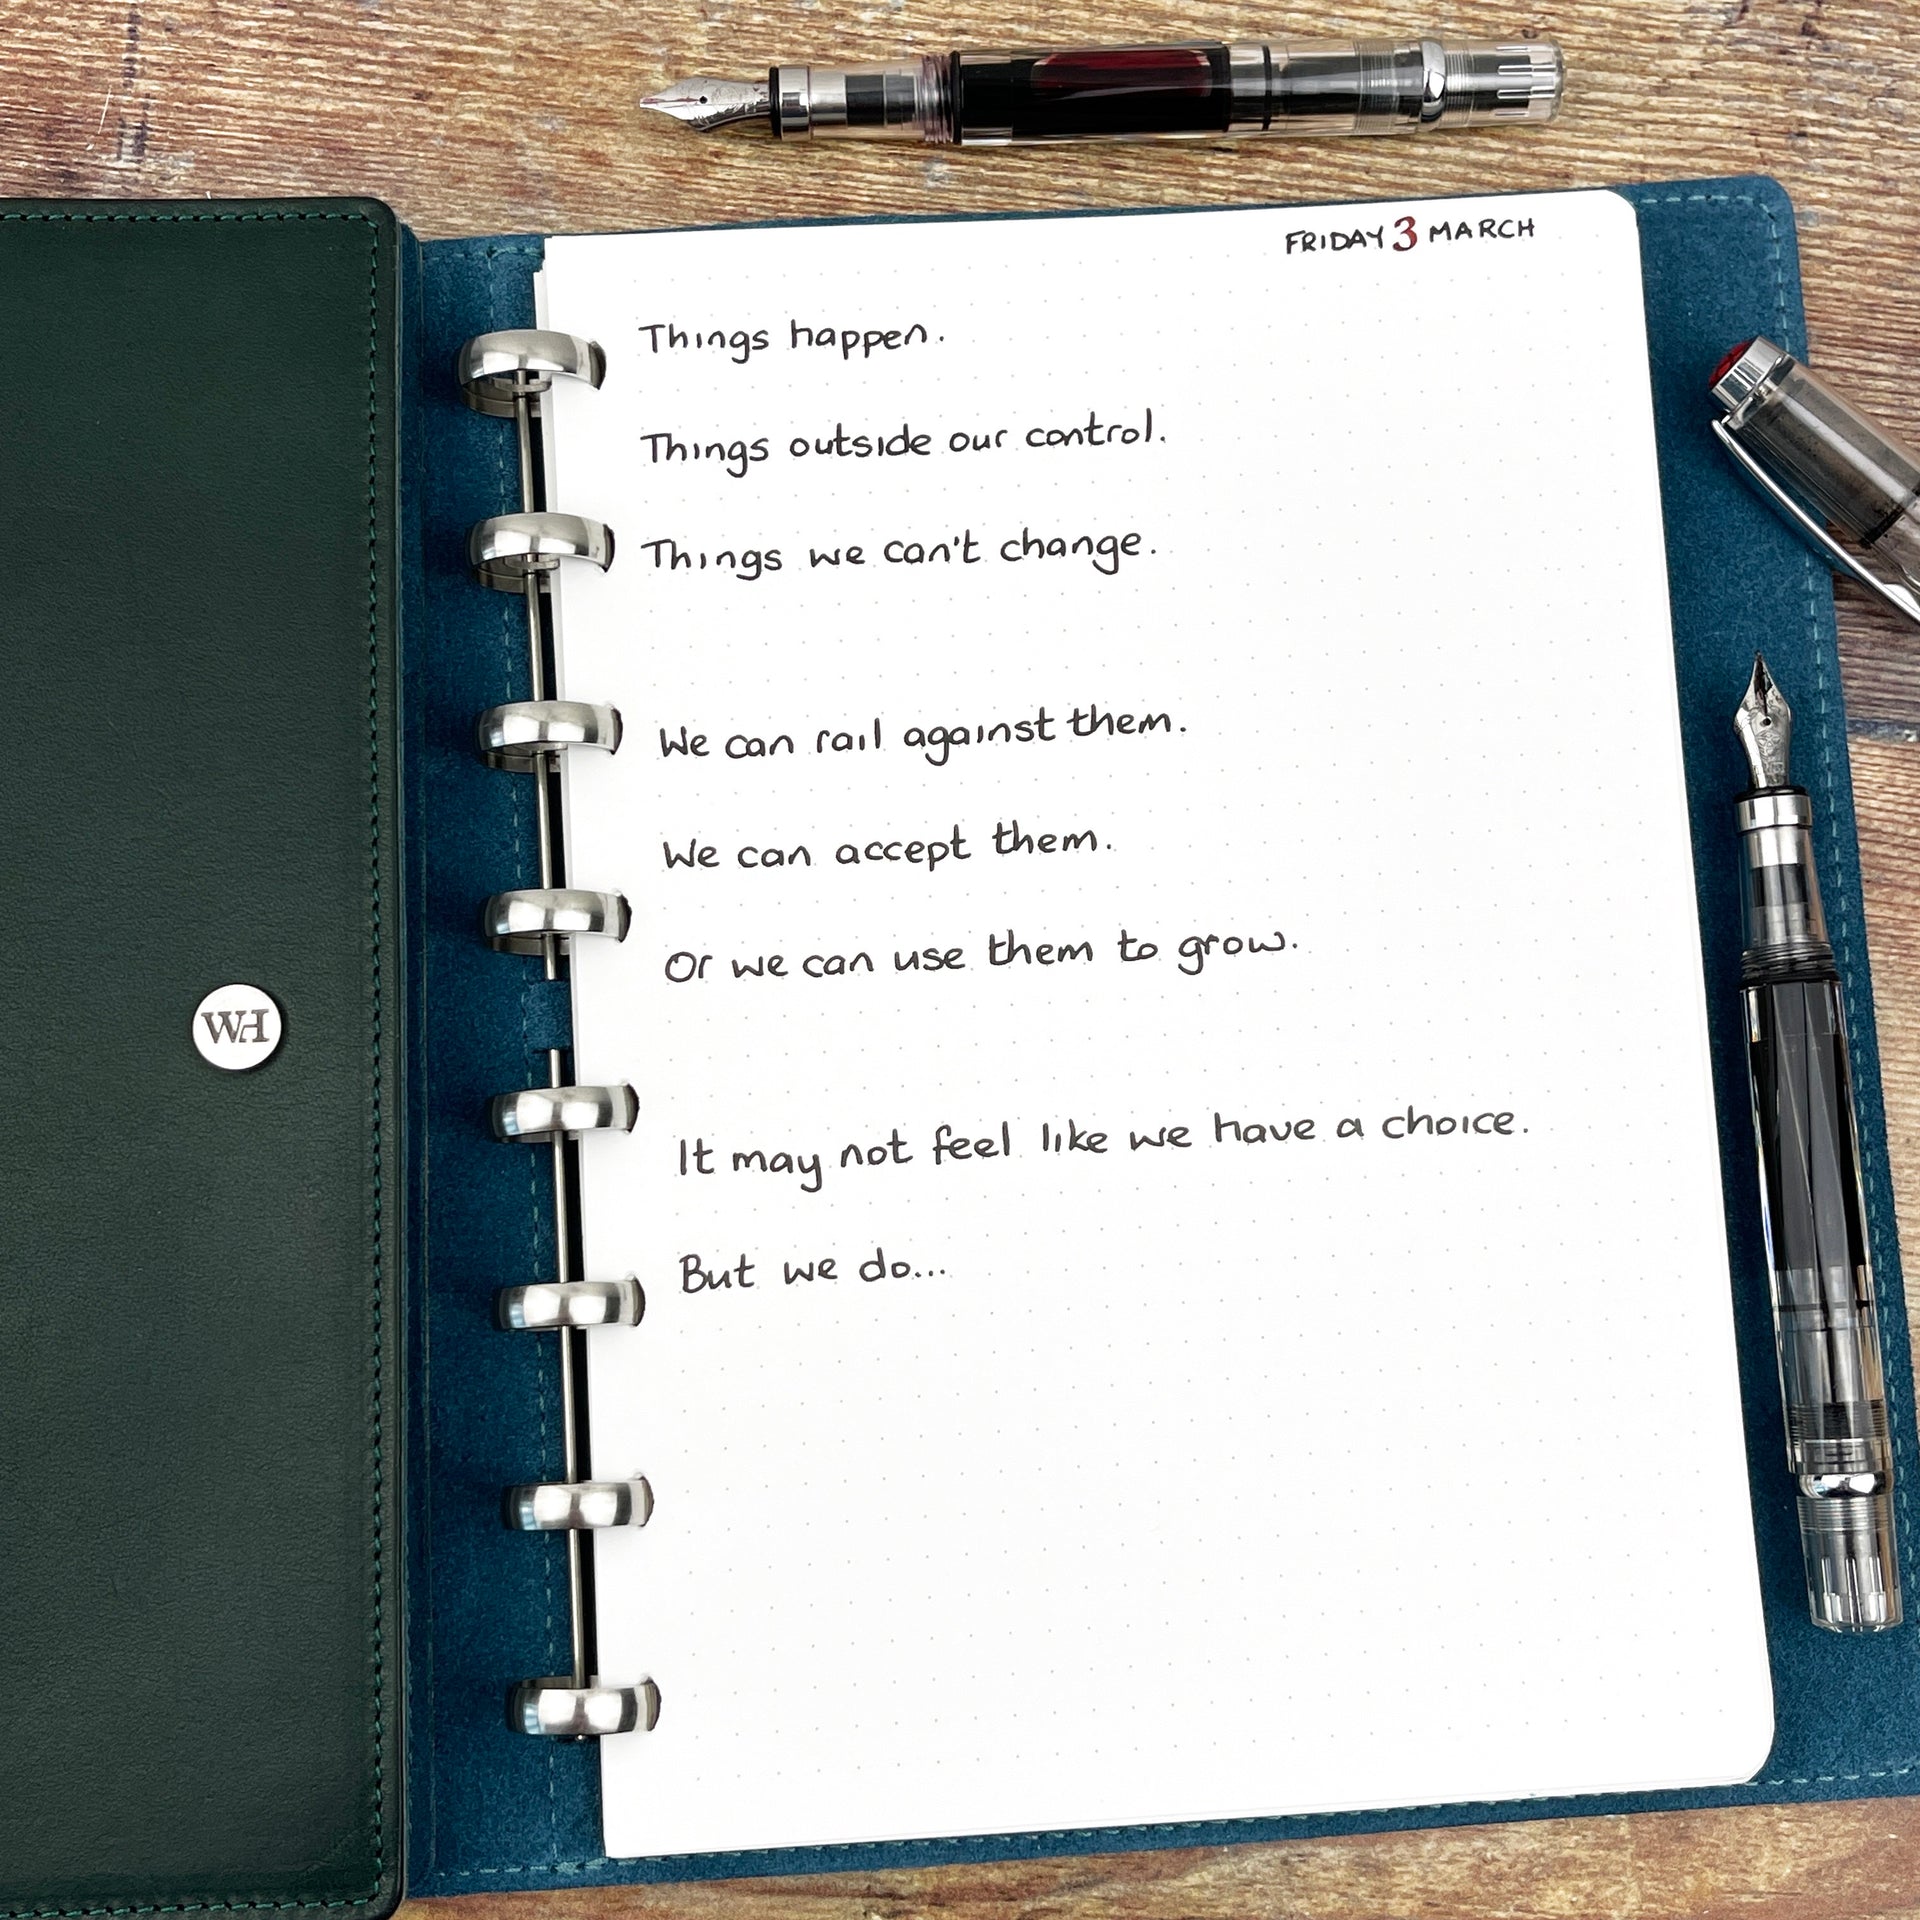 FRIDAY 3 MARCH
Things happen.
Things outside our control.
Things we can't change.
We can rail against them.
We can accept them.
Or we can use them to grow.
It may not feel like we have a choice.
But we do...
WH